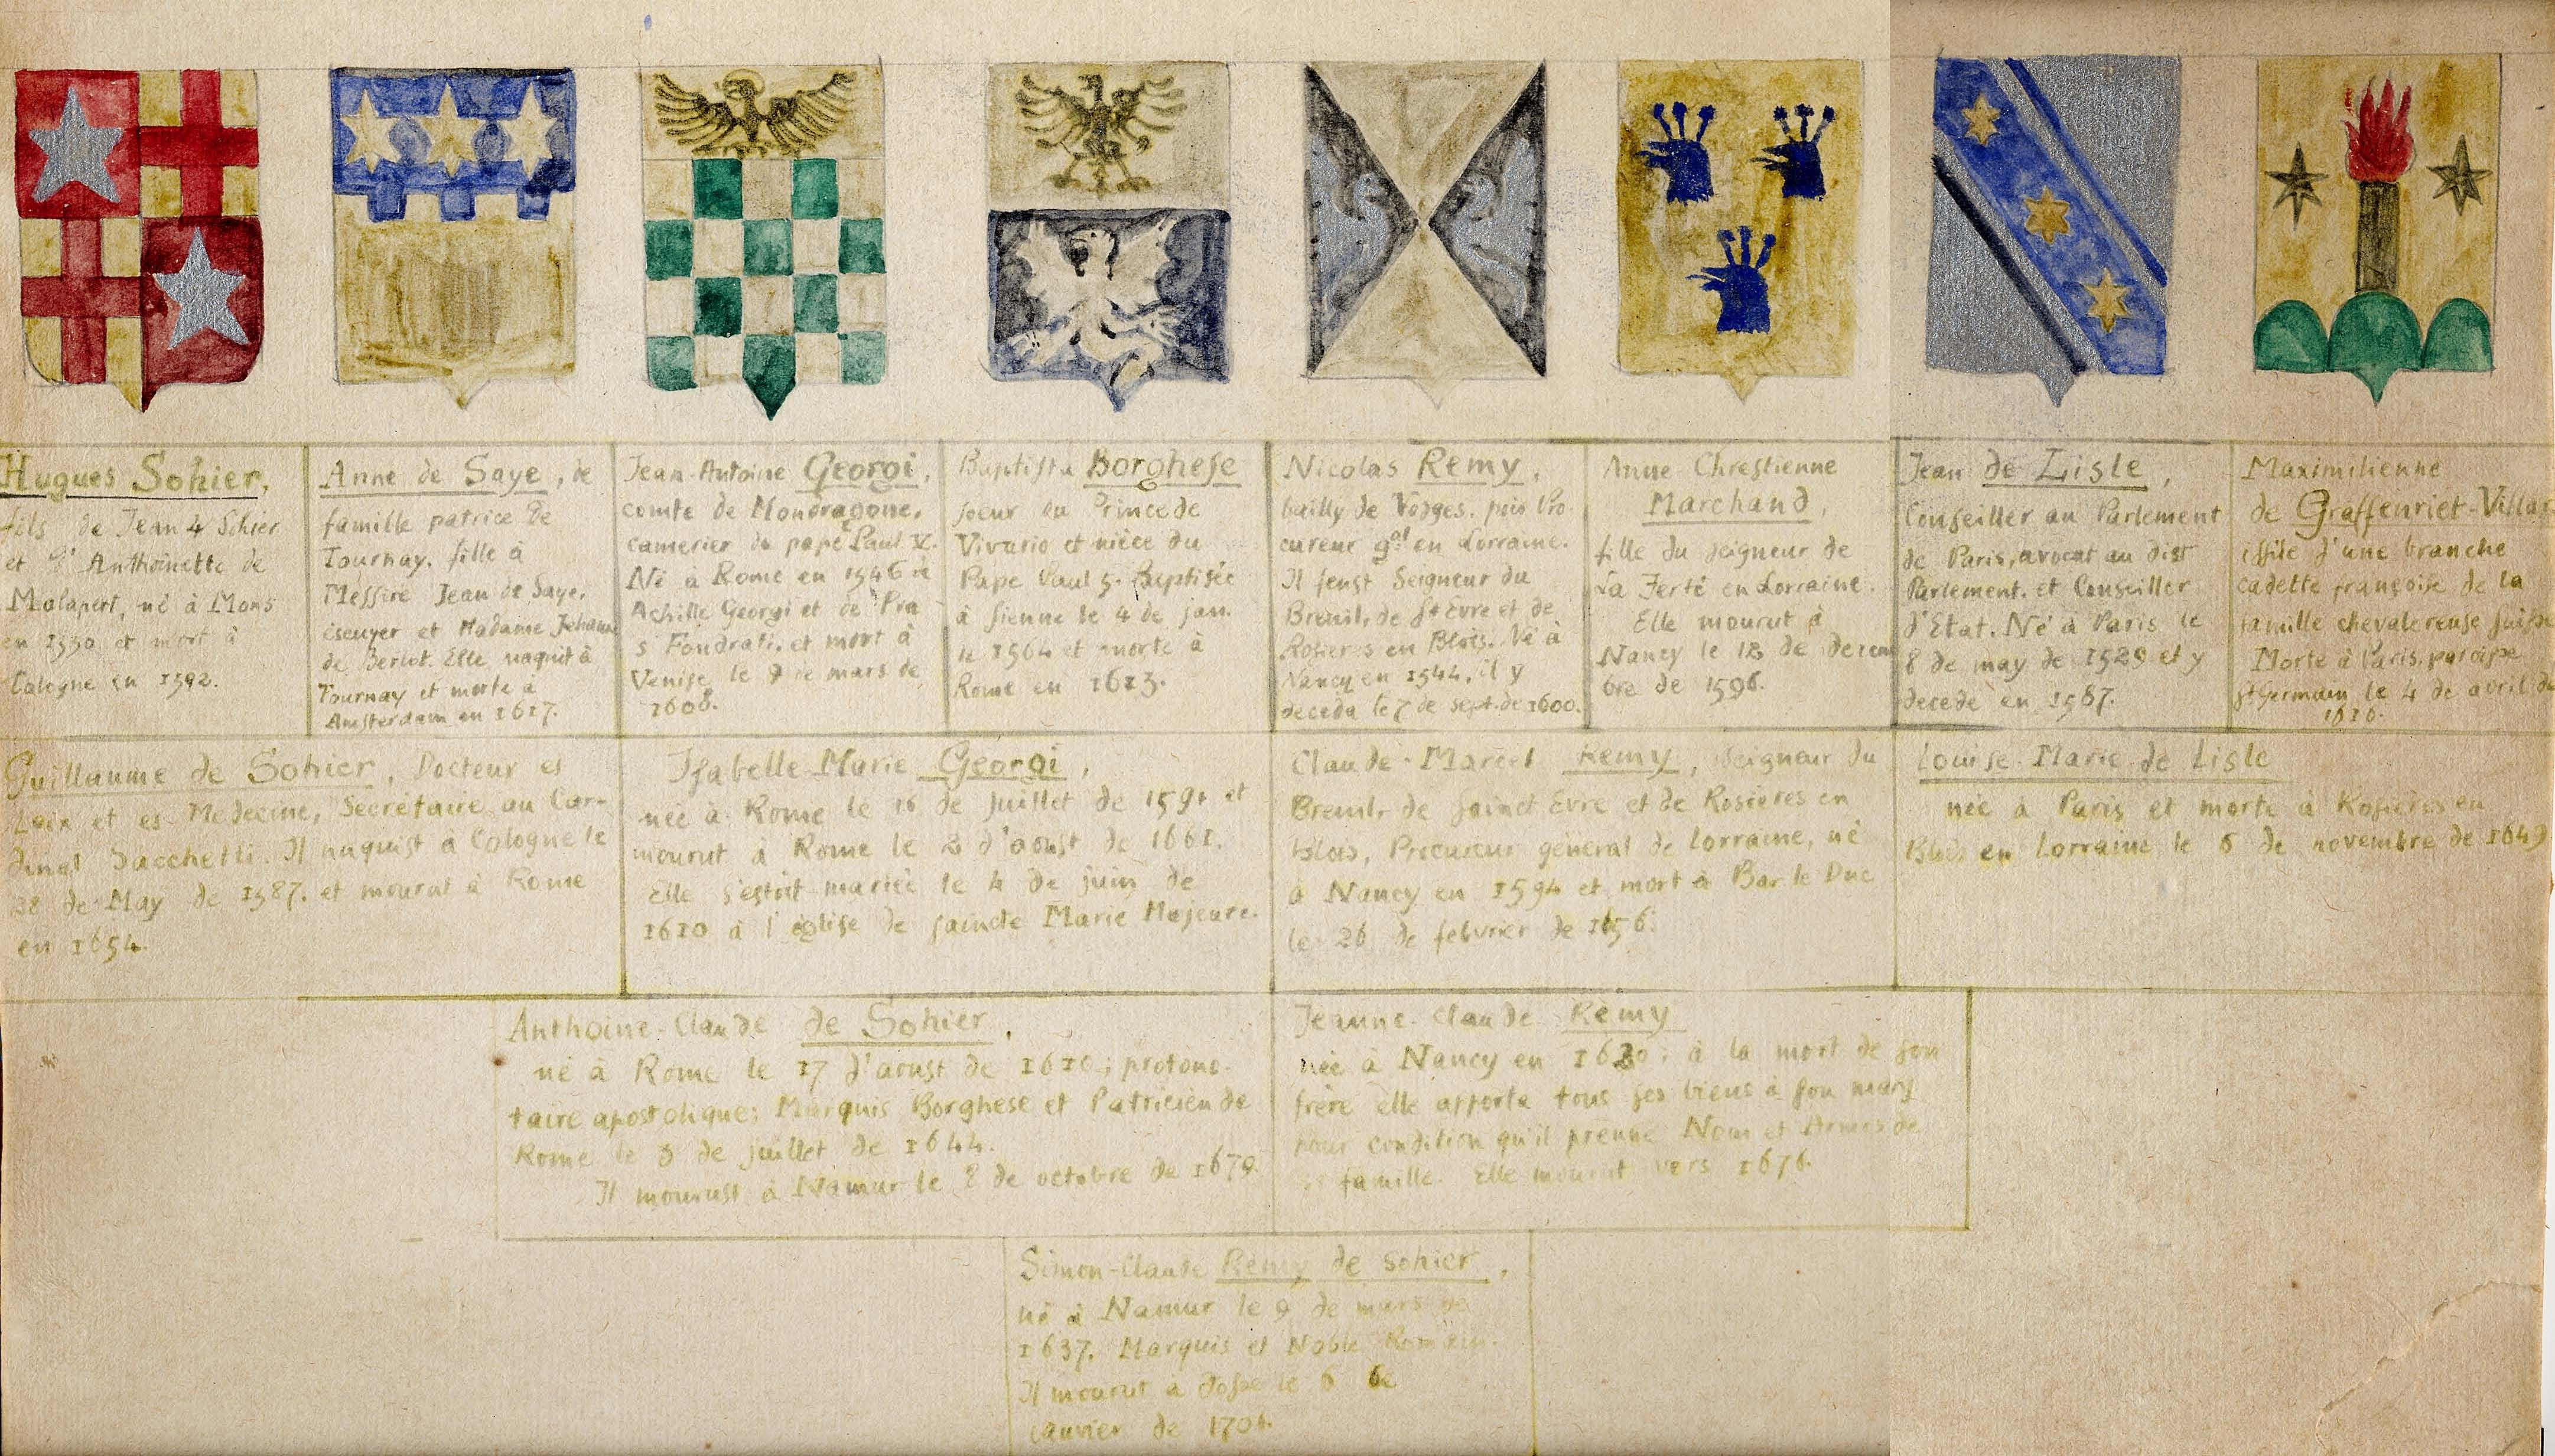 Hugues Sohier,
fils de Jean 4 Sohier
et Anthoinette de
Malapert, né à Mons
en 1550 et mort à
Cologne en 1592.
Anne de Saye, de
famille patrice de
Tournay, fille à
Messire Jean de Saye,
escuyer et Madame Jehanne
de Berlot. Elle naquit à
Tournay et morte à
Amsterdam en 1617.
Jean-Antoine Georgi,
comte de Mondragone,
camerier du pape Paul V.
Né à Rome en 1546
Achille Georgi et de
Fondrati, et mort à
Venise le 7 de mars de
1608.
Baptista Borghese
soeur du Prince de
Vivario et nièce du
Pape Paul 5. Baptisée
à Sienne le 4 de jan.
le 1564 et morte à
Rome en 1613.
Nicolas Remy,
bailly de Vosges, puis Pro-
cureur gal en Lorraine.
Il feust Seigneur du
Breuil, de St Evre et de
Rosieres en Blois. Né à
Nancy en 1544, il y
deceda le 7 de sept. de 1600.
Anne Chrestienne
Marchand,
fille du seigneur de
La Ferté en Lorraine.
Elle mourut à
Nancy le 18 de decem
bre de 1596.
Jean de Lisle,
Conseiller au Parlement
de Paris, avocat au dist
Parlement, et Conseiller
d'Etat. Né à Paris le
8 de may de 1529 et y
decede en 1587.
Maximilienne
de Graffenriet-Villar
issüe d'une branche
cadette françoise de la
famille chevalereuse suisse
Morte à Paris, paroisse
St Germain le 4 de avril de
1610.
Guillaume de Sohier, Docteur es
Loix et es Medecine, Secrétaire au Car-
dinal Sacchetti. Il naquist à Cologne le
28 de May de 1587. et mourut à Rome
en 1654.
Isabelle-Marie Georgi,
née à Rome le 16 de Juillet de 1591 et
mourut à Rome le 2 d'aoust de 1661.
Elle s'estoit mariée le 4 de juin de
1610 à l'église de saincte Marie Majeure.
Claude-Marcel Remy, Seigneur du
Breuil, de Sainct Evre et de Rosieres en
Blois, Procureur général de Lorraine, né
à Nancy en 1594 et mort à Bar le Duc
le 26 de febvrier de 1656.
Louise-Marie de Lisle
née à Paris et morte à Rosieres en
Blois en Lorraine le 6 de novembre de 1649
Anthoine-Claude de Sohier,
né à Rome le 17 d'aoust de 1610; protono-
taire apostolique; Marquis Borghese et Patricien de
Rome le 3 de juillet de 1644.
Il mourust à Namur le 8 de octobre de 1679.
Jeanne-Claude Remy
née à Nancy en 1620; à la mort de son
frère elle apporta tous ses biens à son mary
pour condition qu'il prenne Nom et Armes de
sa famille. Elle mourut vers 1676.
Simon-Claude Remy de Sohier,
né à Namur le 9 de mars de
1637. Marquis et Noble Romain.
Il mourut à le 6 de
Janvier de 1704.